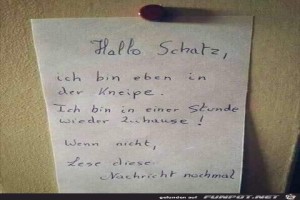 Hallo Schatz,
ich bin eben in
der Kneipe.
Ich bin in einer Stunde
wieder Zuhause!
Wenn nicht,
Lese diese
Nachricht nochmal
gefunden auf FUNPOT.NET